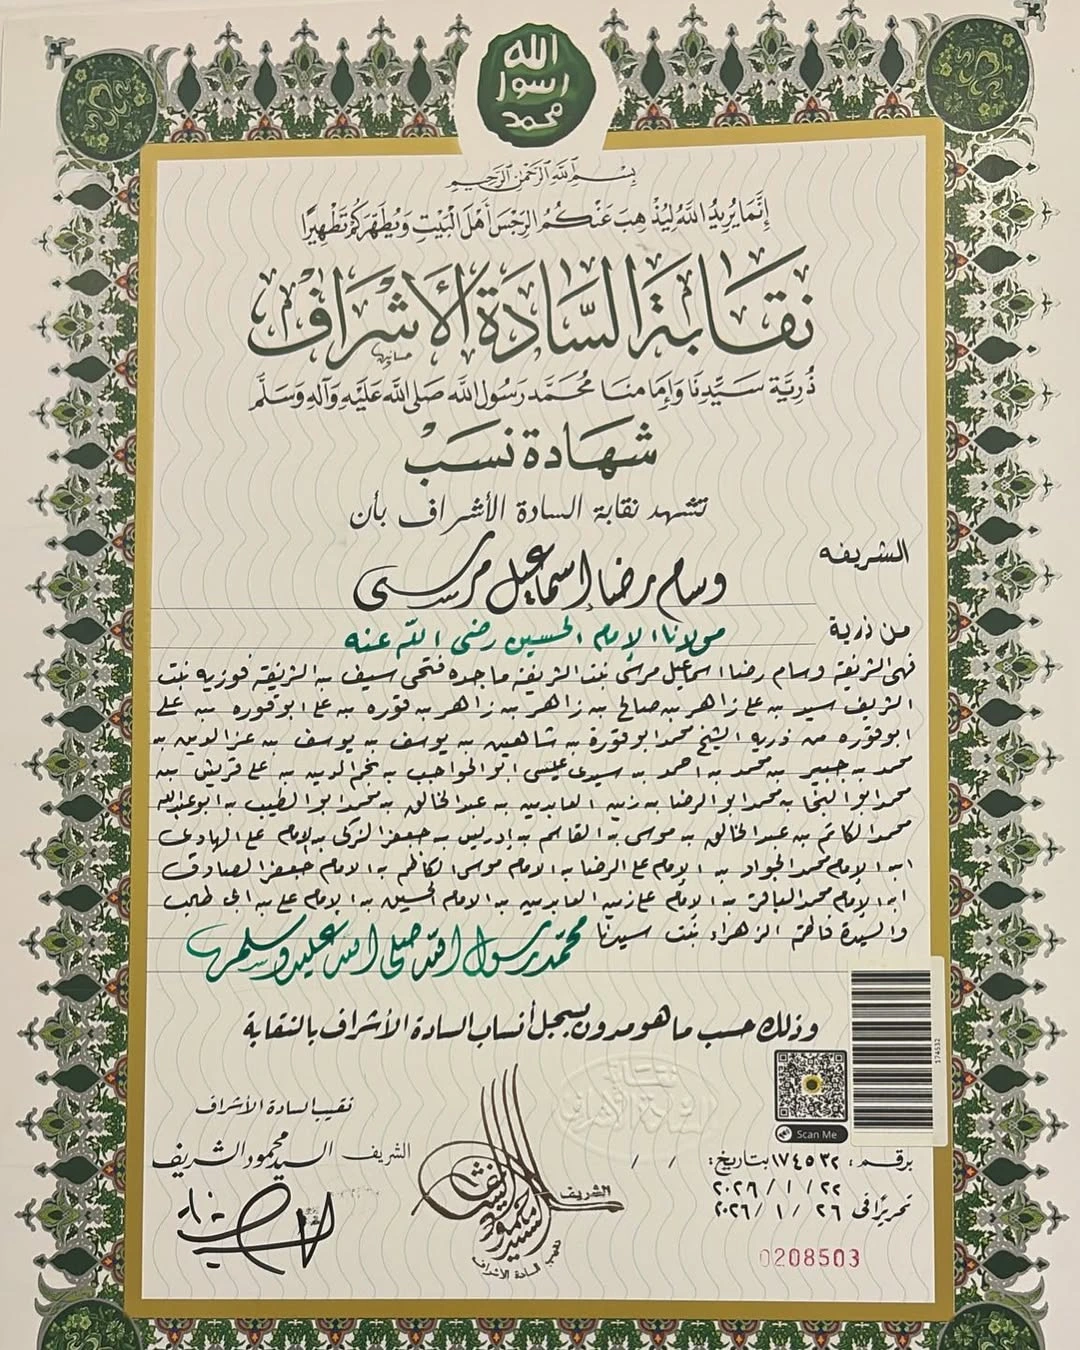 الله
رسول
محمد
بسم الله الرحمن الرحيم
إِنَّمَا يُرِيدُ اللَّهُ لِيُذْهِبَ عَنْكُمُ الرِّجْسَ أَهْلَ الْبَيْتِ وَيُطَهِّرَكُمْ تَطْهِيرًا
نقابة السادة الأشراف
ذرية سيدنا وإمامنا محمد رسول الله صلى الله عليه وآله وسلم
شهادة نسب
تشهد نقابة السادة الأشراف بأن
الشريفه
وسام رضا إسماعيل مرسى
من ذرية مولانا الإمام الحسين رضى الله عنه
فهى الشريفة وسام رضا اسماعيل مرسى بنت الشريفة ماجده فتحى سيف بن الشريفة فوزيه بنت
الشريف سيد بن على زاهر بن صالح بن زاهر بن زاهر بن قوره بن على ابوقوره بن على
ابوقوره من ذرية الشيخ محمد ابوقورة بن شاهين بن يوسف بن يوسف بن عز الدين بن
محمد بن جبير بن محمد بن احمد بن سيدى عيسى ابو الحواجب بن نجم الدين بن على قريش بن
محمد ابو النجا بن محمد ابو الرضا بن زين العابدين بن عبد الخالق بن محمد ابو الطيب بن ابو عبدالله
محمد الكاتم بن عبد الخالق بن موسى بن القاسم بن إدريس بن جعفر الزكى بن الإمام على الهادى
ابن الإمام محمد الجواد بن الإمام على الرضا بن الامام موسى الكاظم بن الامام جعفر الصادق
ابن الإمام محمد الباقر بن الإمام على زين العابدين بن الامام الحسين بن الإمام على بن ابى طالب
والسيدة فاطمة الزهراء بنت سيدنا محمد رسول الله صلى الله عليه وسلم
وذلك حسب ما هو مدون بسجل أنساب السادة الأشراف بالنقابة
174532
Scan Me
نقابة
السادة الأشراف
نقيب السادة الأشراف
الشريف السيد محمود الشريف
الشريف
نقيب السادة الأشراف
برقم: ١٧٤٥٣٢ بتاريخ: / /
٢٢ / ١ / ٢٠٢٦
تحريرًا فى ٢٦ / ١ / ٢٠٢٦
0208503